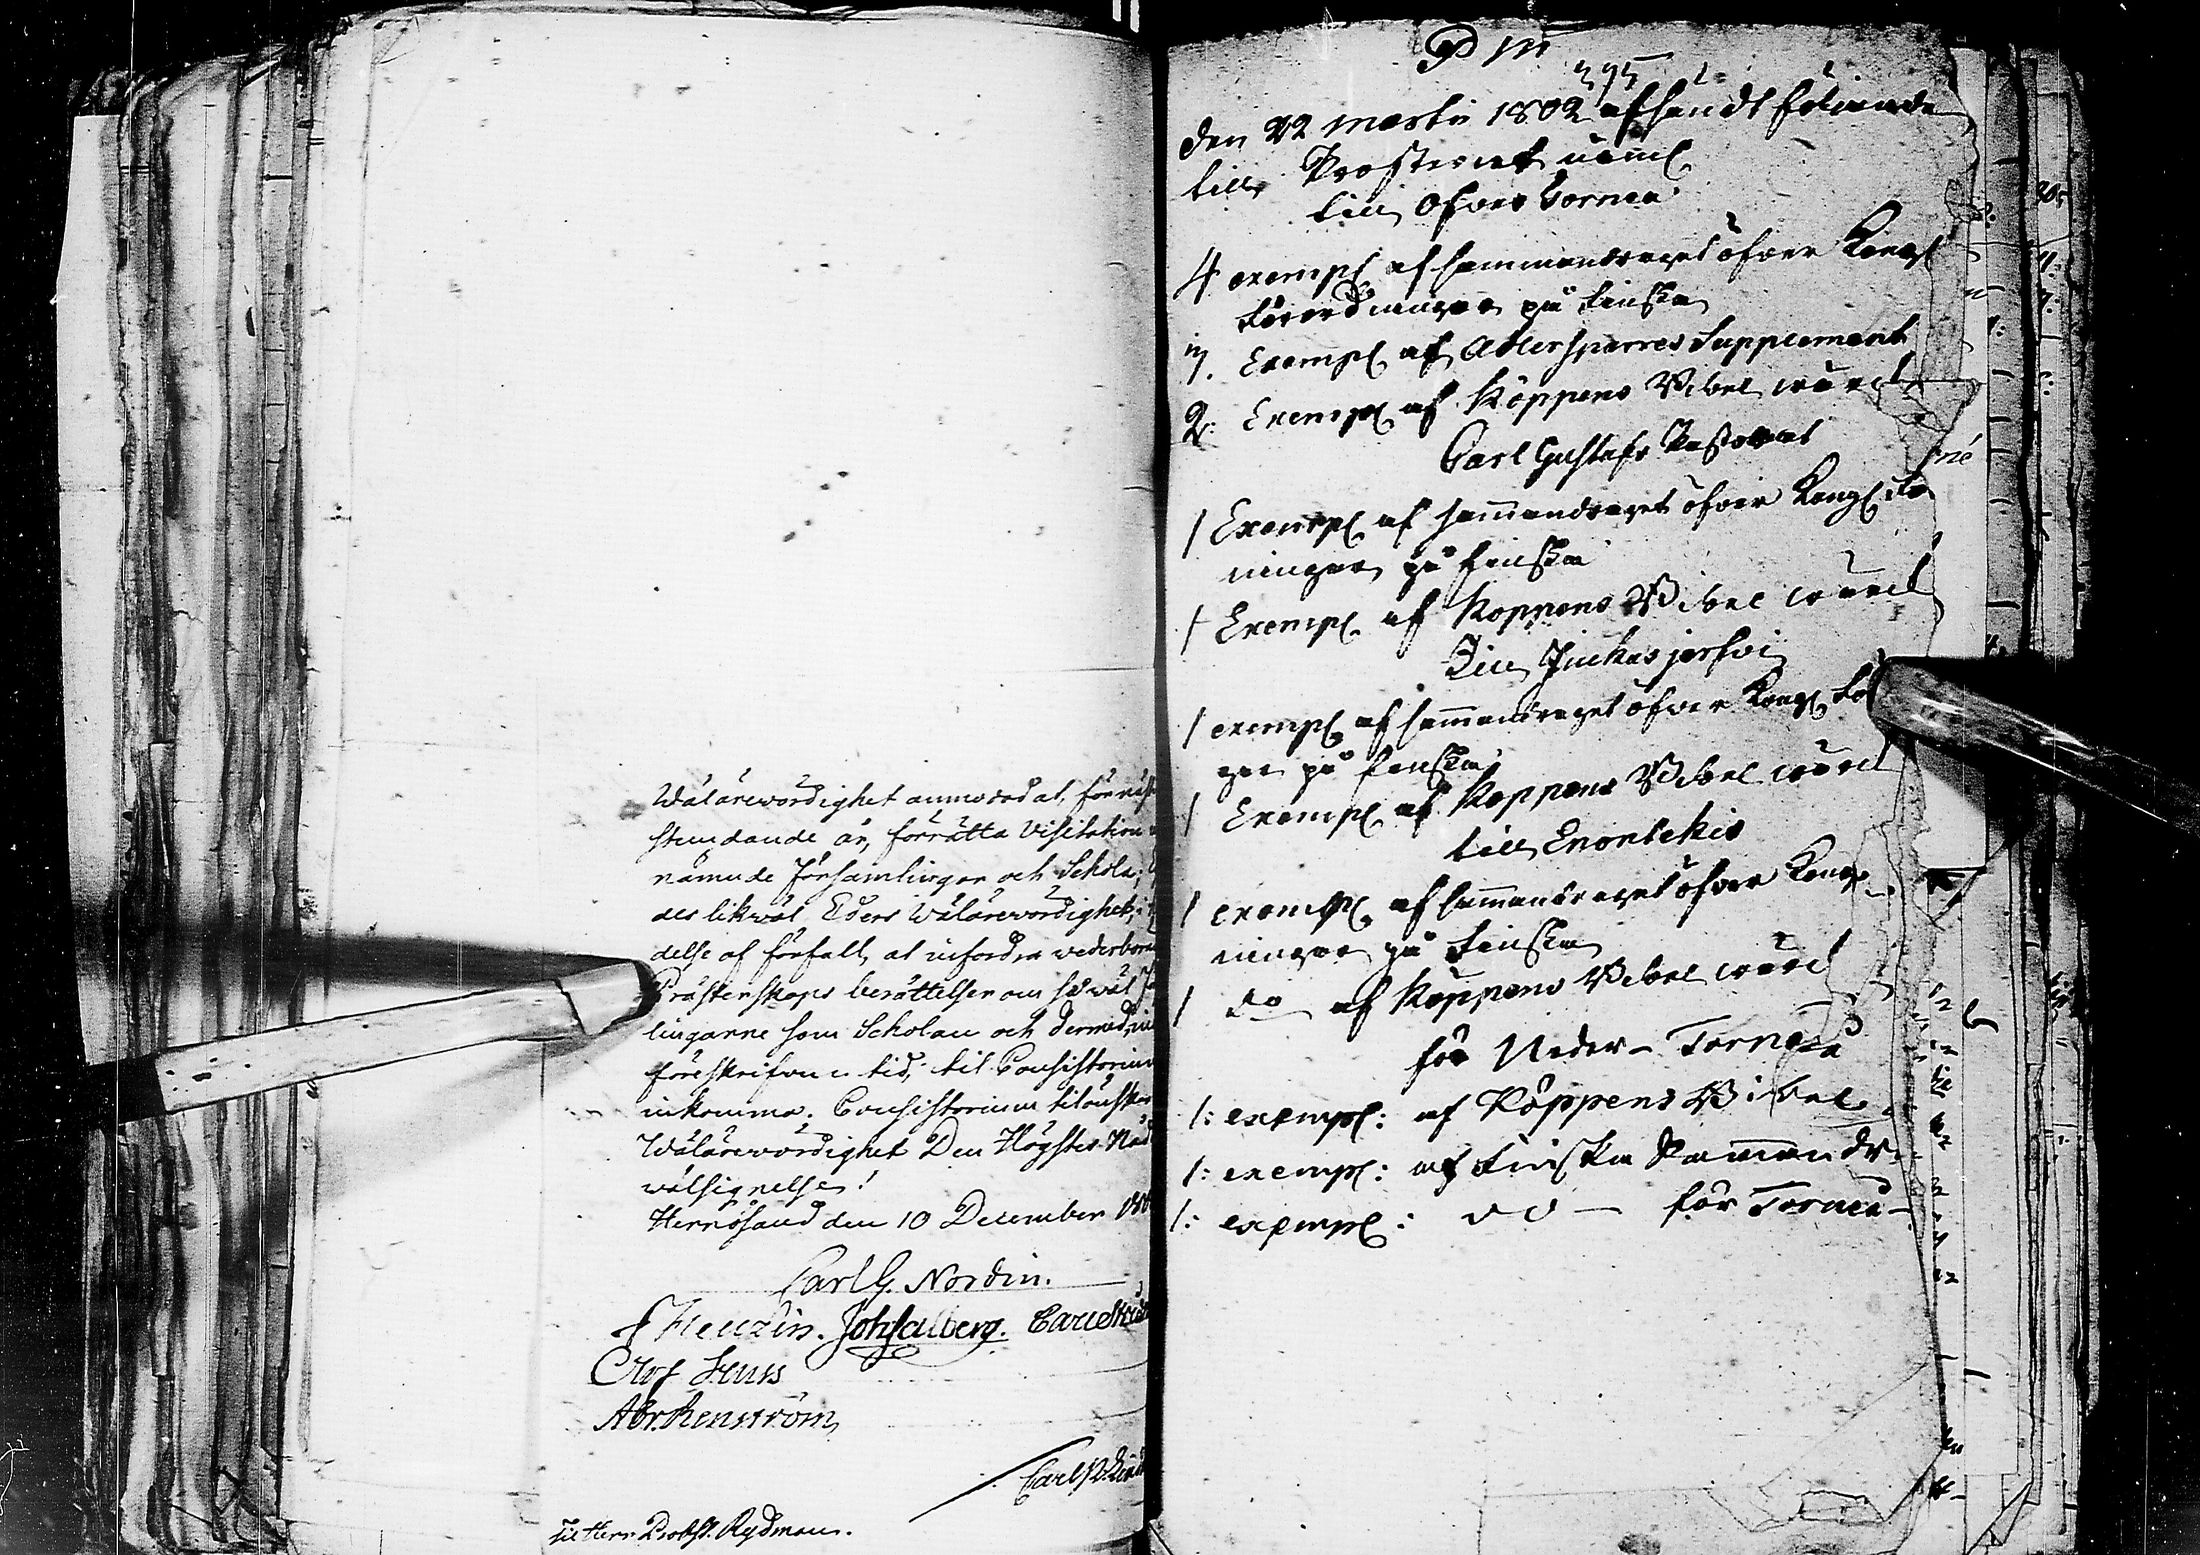 Wälärewördighet anmodad at, för näst
stundande år, förrätta Visitation
nämnde Församlingar och Schola;
des likwäl Eders Wälärewördighet, i
delse af förfall, at infordra wederbör
Prästerskaps berättelser om så wäl
lingarne som Scholan och dermed,
föreskrifven tid, til Consistorium
inkomma. Consistorium tilönskar
Wälärewördighet Den Högstes Nåd
wälsignelse!
Hernösand den 10 December
Carl G. Nordin.
Joh Salberg. Carl
Huss
Abr. Renström
Carl
Til Herr Probst. Rydman.
P M
395
den 22 Martii 1802 afsändt följande
till Prosteriet näml
till Öfver Torneå
4 exempl af sammandraget öfver Kongl
Förordningar på Finska
7. Exempl af Adlersparres Supplement
2: Exempl af Köppens Bibel wärd
Carl Gustafs Pastorat
1 Exempl af sammandraget öfver Kongl Fö
ningar på Finska
1 Exempl af Koppens Bibel wärd
Till Juckasjerfvi
1 exempl af sammandraget öfver Kongl Fö
gar på Finska
1 Exempl af Koppens Bibel wärd
till Enontekis
1 exempl af sammandraget öfver Kong
ningar på Finska
1 do af Köppens Bibel wärd
för Neder-Torneå
1: exempl: af Köppens Bibel
1: exempl: af Finska Sammandr
1: exempl: do — för Torneå